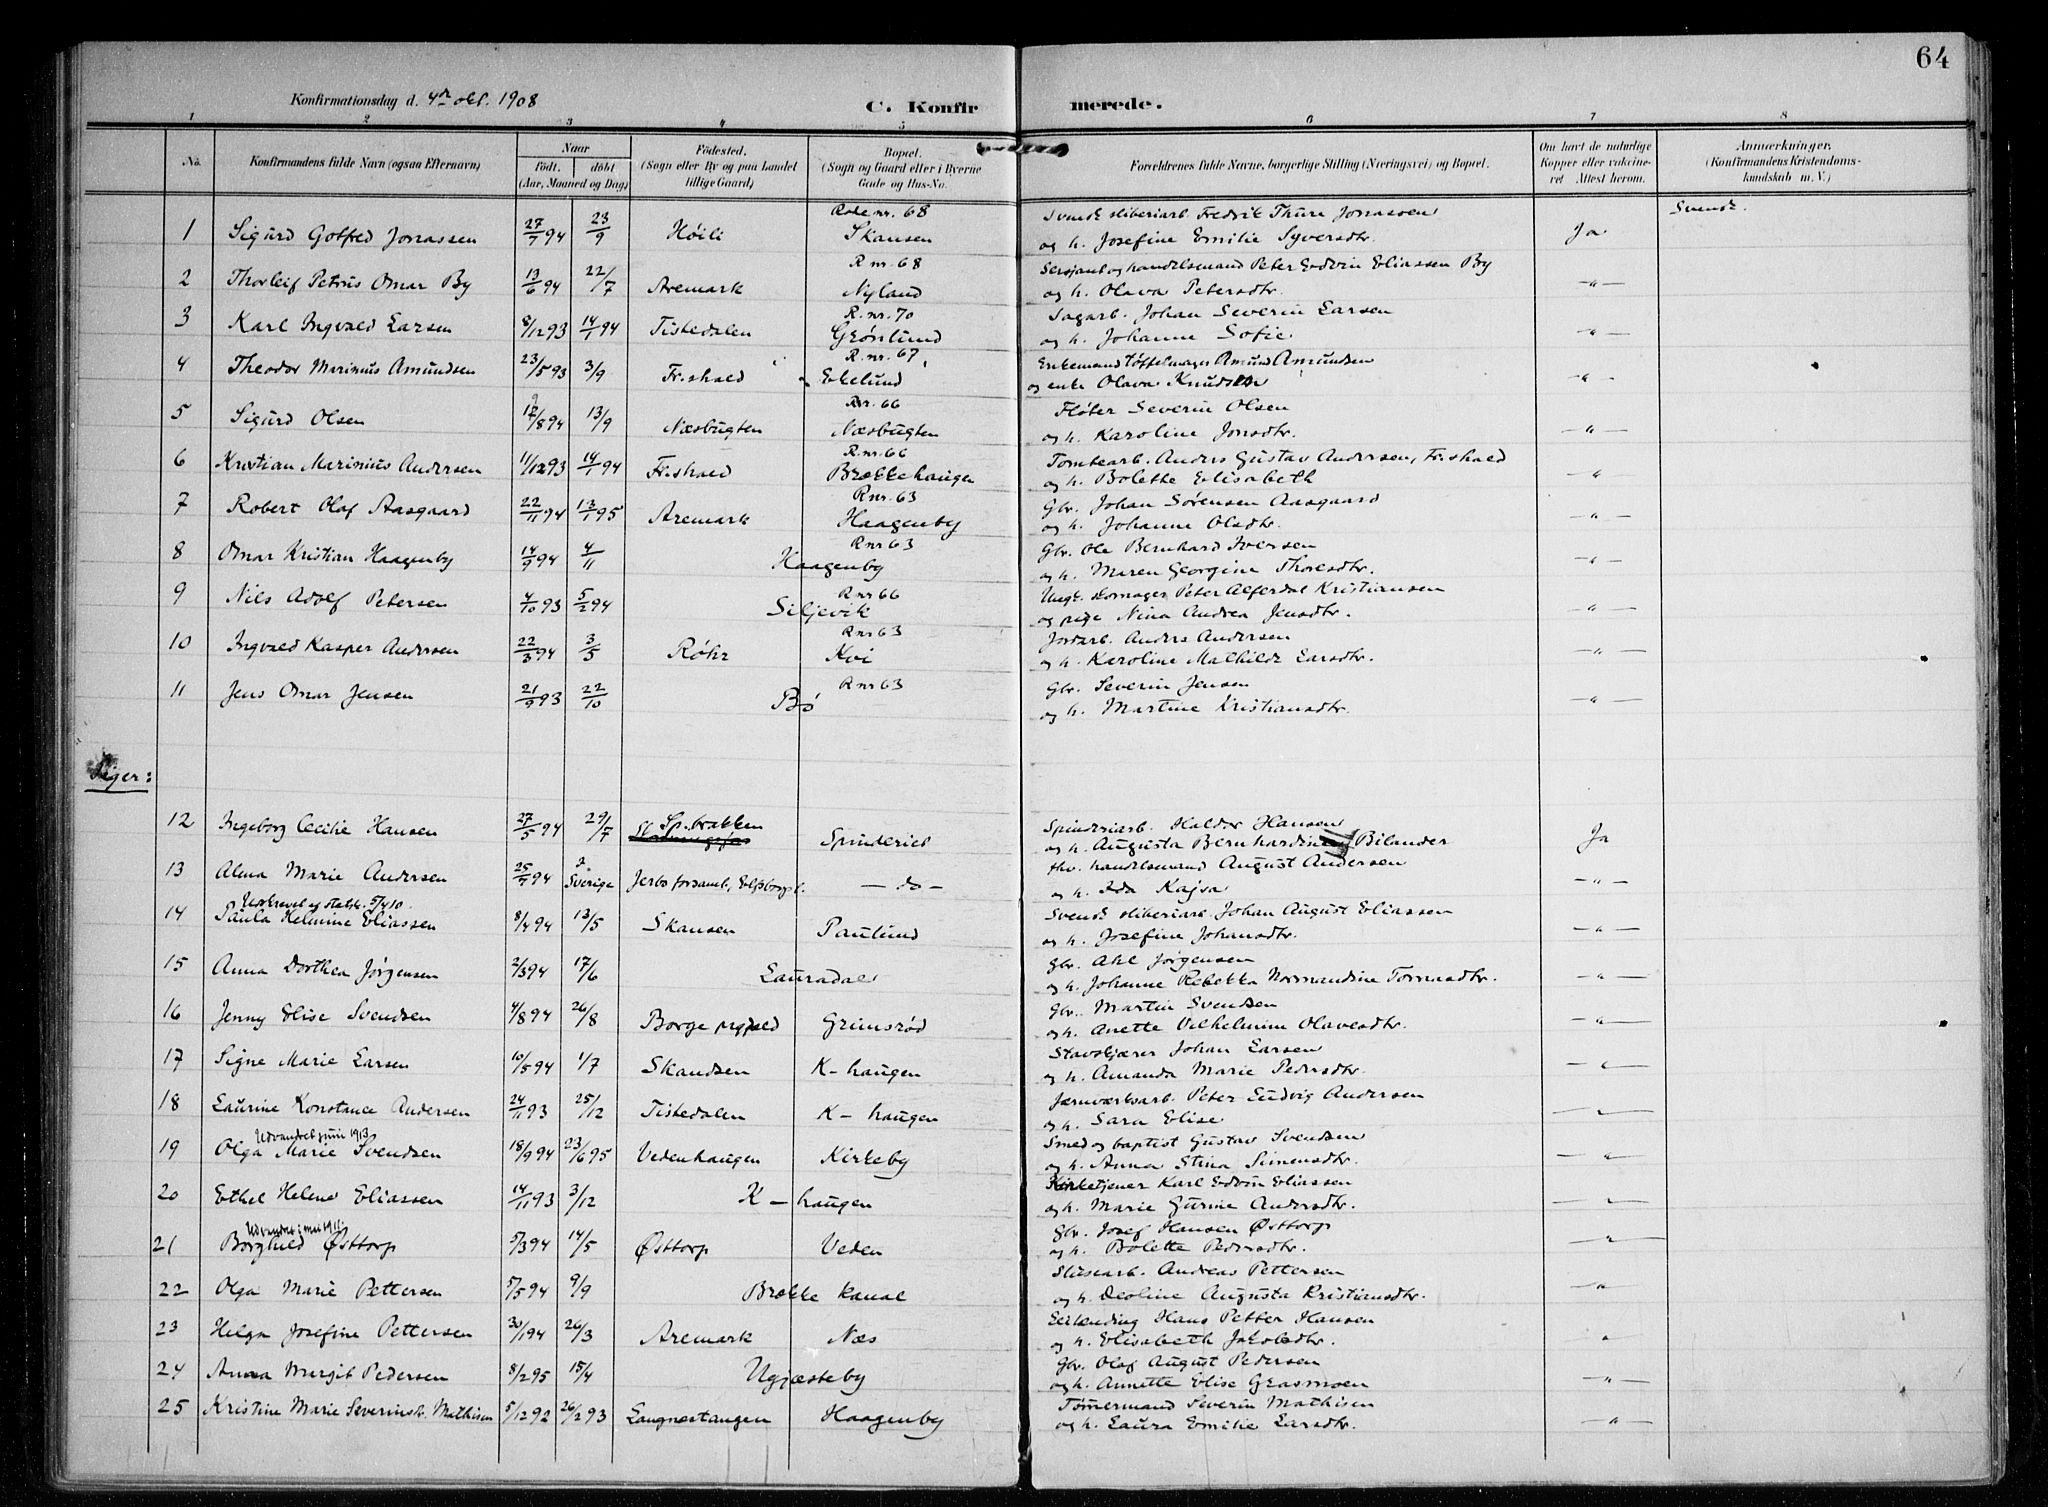 64
Konfirmationsdag d. 4de okt. 1908
C. Konfirmerede.
1 2 3 4 5 6 7 8
No.
Konfirmandens fulde Navn (ogsaa Efternavn)
Naar
født. døbt
(Aar, Maaned og Dag)
Fødested.
(Sogn eller By og paa Landet tillige Gaard)
Bopæl.
(Sogn og Gaard eller i Byerne Gade og Hus-No.
Forældrenes fulde Navne, borgerlige Stilling (Næringsvei) og Bopæl.
Om havt de naturlige Kopper eller vaccineret Attest herom.
Anmærkninger.
(Konfirmandens Kristendomskundskab m. V.)
1 Sigurd Gotfred Jonassen 27/7 94 23/9 Høili Rode nr. 68 Skansen Svensk sliberiarb. Fredrik Thure Jonasson Ja Svensk.
og h. Josefine Emilie Syversdtr.
2 Thorleif Petrus Omar By 13/6 94 22/7 Aremark R nr. 68 Nyland Sersjant og handelsmand Peter Edvin Eliassen By —"—
og h. Olava Petersdtr.
3 Karl Ingvald Larsen 8/12 93 14/1 94 Tistedalen R. nr. 70 Grønlund Sagarb. Johan Severin Larsen —"—
og h. Johanne Sofie
4 Theodor Marinius Amundsen 23/5 93 3/9 Fr.shald R. nr. 67 Ekelund Enkemand tøffelmager Amund Amundsen —"—
og enke Olava Knudsen
5 Sigurd Olsen /8 94 13/9 Næsbugten R nr. 66 Næsbugten Fløter Severin Olsen —"—
og h. Karoline Jonsdtr.
6 Kristian Marinius Andersen 11/12 93 14/1 94 Fr.shald R. nr. 66 Brækkehaugen Tomtearb. Anders Gustav Andersen, Fr.shald "
og h. Bolette Elisabeth
7 Robert Olaf Aasgaard 22/11 94 13/1 95 Aremark R nr. 63 Haagenby Gbr. Johan Sørensen Aasgaard —"—
og h. Johanne Olsdtr.
8 Omar Kristian Haagenby 14/9 94 4/11 Haagenby R nr 63 Gbr. Ole Bernhard Iversen —"—
og h. Maren Georgine Thoresdtr.
9 Nils Adolf Petersen 4/10 93 5/2 94 Siljevik R nr 66 Ungk. skomager Peter Alferdal Kristiansen —"—
og pige Nina Andrea Jensdtr.
10 Ingvald Kasper Andersen 22/3 94 3/5 Røhr R nr 63 Kvi Jordarb. Anders Andersen —"—
og h. Karoline Mathilde Larsdtr.
11 Jens Omar Jensen 21/9 93 22/10 Bø R nr 63 Gbr. Severin Jensen —"—
og h. Martine Kristiansdtr.
Piger:
12 Ingeborg Cecilie Hansen 27/5 94 29/7 Sp.brakken Spinderiet Spinderiarb. Haldor Hansen Ja
og h. Augusta Bernhardine Bilander
13 Alma Marie Andersen 25/7 94 ? Sverige Jerbo forsaml., Elfsborg l. — do — fhv. handelsmand August Andersen —"—
og h. Ida Kajsa
14 Udskrevet og statsk. 5/4 10.
Paula Helmine Eliassen 8/4 94 13/5 Skansen Paulund Svensk sliberiarb. Johan August Eliassen —"—
og h. Josefine Johansdtr.
15 Anna Dorthea Jørgensen 2/3 94 17/6 Lauradal Gbr. Ahl Jørgensen —"—
og h. Johanne Rebekka Normandine Tomasdtr.
16 Jenny Elise Svendsen 4/8 94 26/8 Borge prgjeld Grimsrød Gbr. Martin Svendsen —"—
og h. Anette Vilhelmine Olavesdtr.
17 Signe Marie Larsen 10/5 94 1/7 Skandsen K-haugen Stavskjærer Johan Larsen —"—
og h. Amanda Marie Pedersdtr.
18 Laurine Konstance Andersen 24/11 93 25/12 Tistedalen K-haugen Jærnværksarb. Peter Ludvig Andersen —"—
og h. Sara Elise
19 Udvandret juni 1913
Olga Marie Svendsen 18/9 94 23/6 95 Vedenhaugen Kirkeby Smed og baptist Gustav Svendsen —"—
og h. Anna Stina Simensdtr.
20 Ethel Helene Eliassen 14/11 93 3/12 K-haugen Kirketjener Karl Edvin Eliassen —"—
og h. Marie Gurine Andersdtr.
21 Udvandret mai 1911.
Borghild Østtorp 5/3 94 14/5 Østtorp Veden Gbr. Josef Hansen Østtorp —"—
og h. Bolette Pedersdtr.
22 Olga Marie Pettersen 5/5 94 9/9 Brække kanal Slusearb. Andreas Pettersen —"—
og h. Deoline Augusta Kristiansdtr.
23 Helga Josefine Pettersen 30/1 94 26/3 Aremark Næs Leilending Hans Petter Hansen "
og h. Elisabeth Jakobsdtr.
24 Anna Margit Pedersen 8/2 95 15/4 Ugjæsteby Gbr. Olaf August Pedersen —"—
og h. Annette Elise Grasmoen
25 Kristine Marie Severinsdtr. Mathisen 5/12 92 26/2 93 Langnestangen Haagenby Tømmermand Severin Mathisen —"—
og h. Laura Emilie Larsdtr.